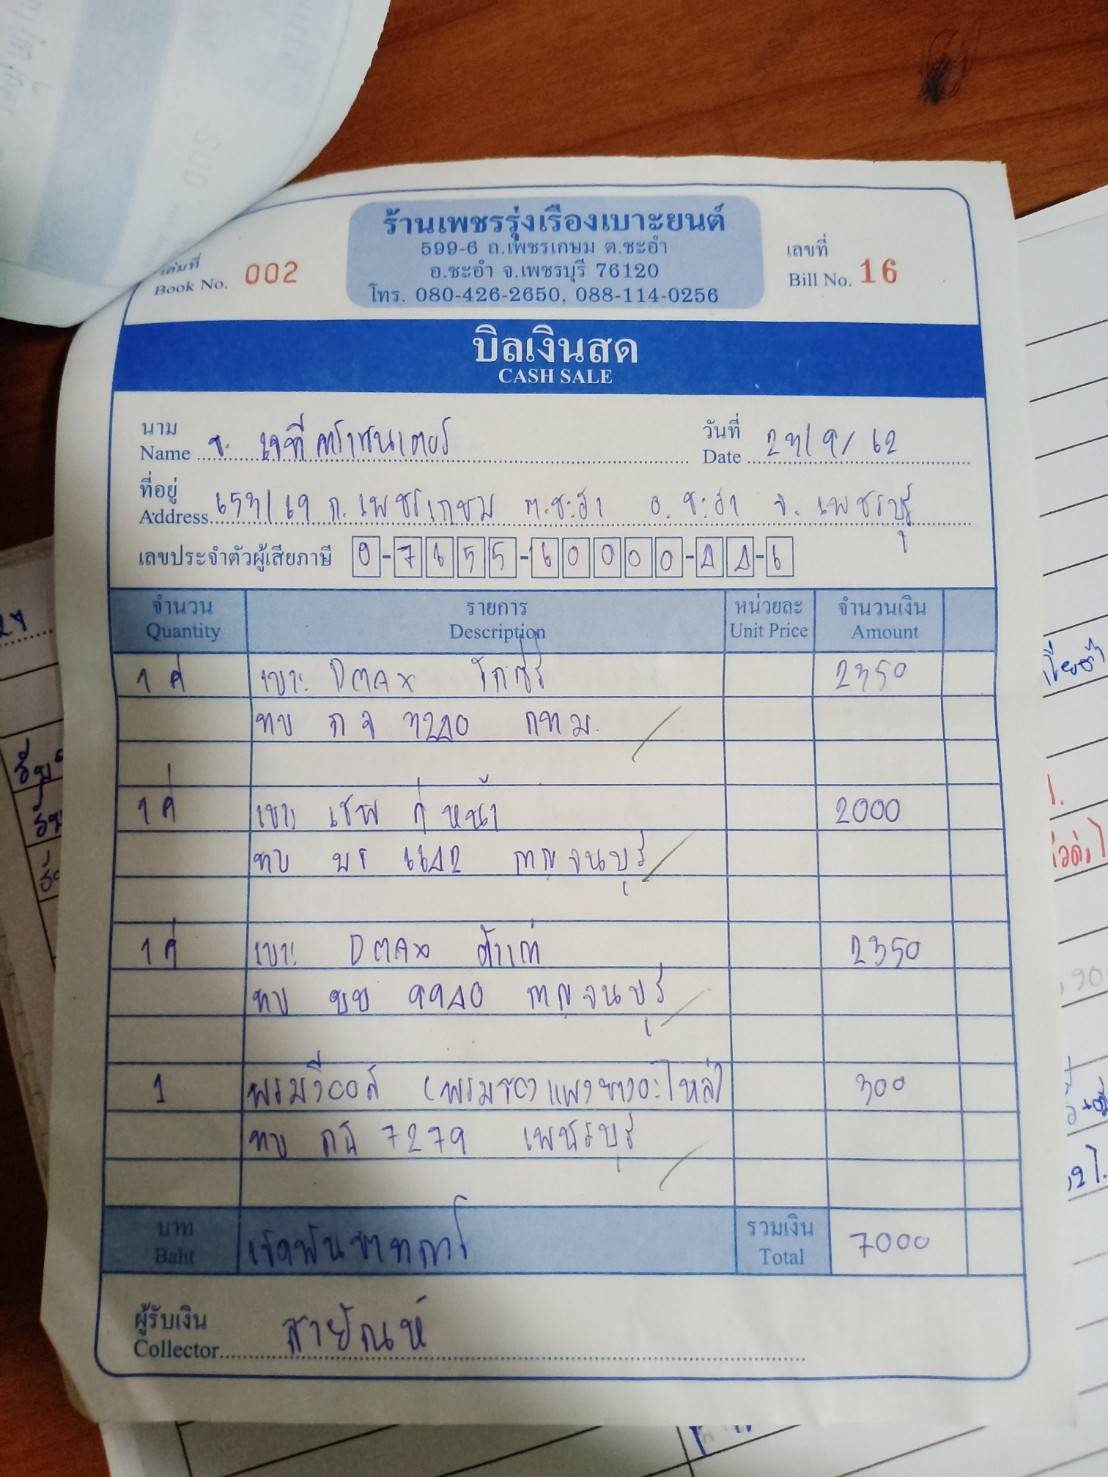 ร้านเพชรรุ่งเรืองเบาะยนต์
599-6 ถ.เพชรเกษม ต.ชะอำ
อ.ชะอำ จ.เพชรบุรี 76120
โทร. 080-426-2650, 088-114-0256
เล่มที่
Book No. 002
เลขที่
Bill No. 16
บิลเงินสด
CASH SALE
นาม
Name
วันที่
Date 27/9/62
ที่อยู่
Address 657/69 ถ.เพชรเกษม ต.ชะอำ อ.ชะอำ จ.เพชรบุรี
เลขประจำตัวผู้เสียภาษี
จำนวน รายการ หน่วยละ จำนวนเงิน
Quantity Description Unit Price Amount
1 คู่ เบาะ DMAX 2350
ทบ 7240 กทม.
1 คู่ เบาะ คู่ หน้า 2000
ทบ 6642 กาญจนบุรี
1 คู่ เบาะ DMAX 2350
ทบ 9940 กาญจนบุรี
1 300
ทบ 7279 เพชรบุรี
บาท เจ็ดพันบาทถ้วน รวมเงิน 7000
Baht Total
ผู้รับเงิน
Collector สายัณห์